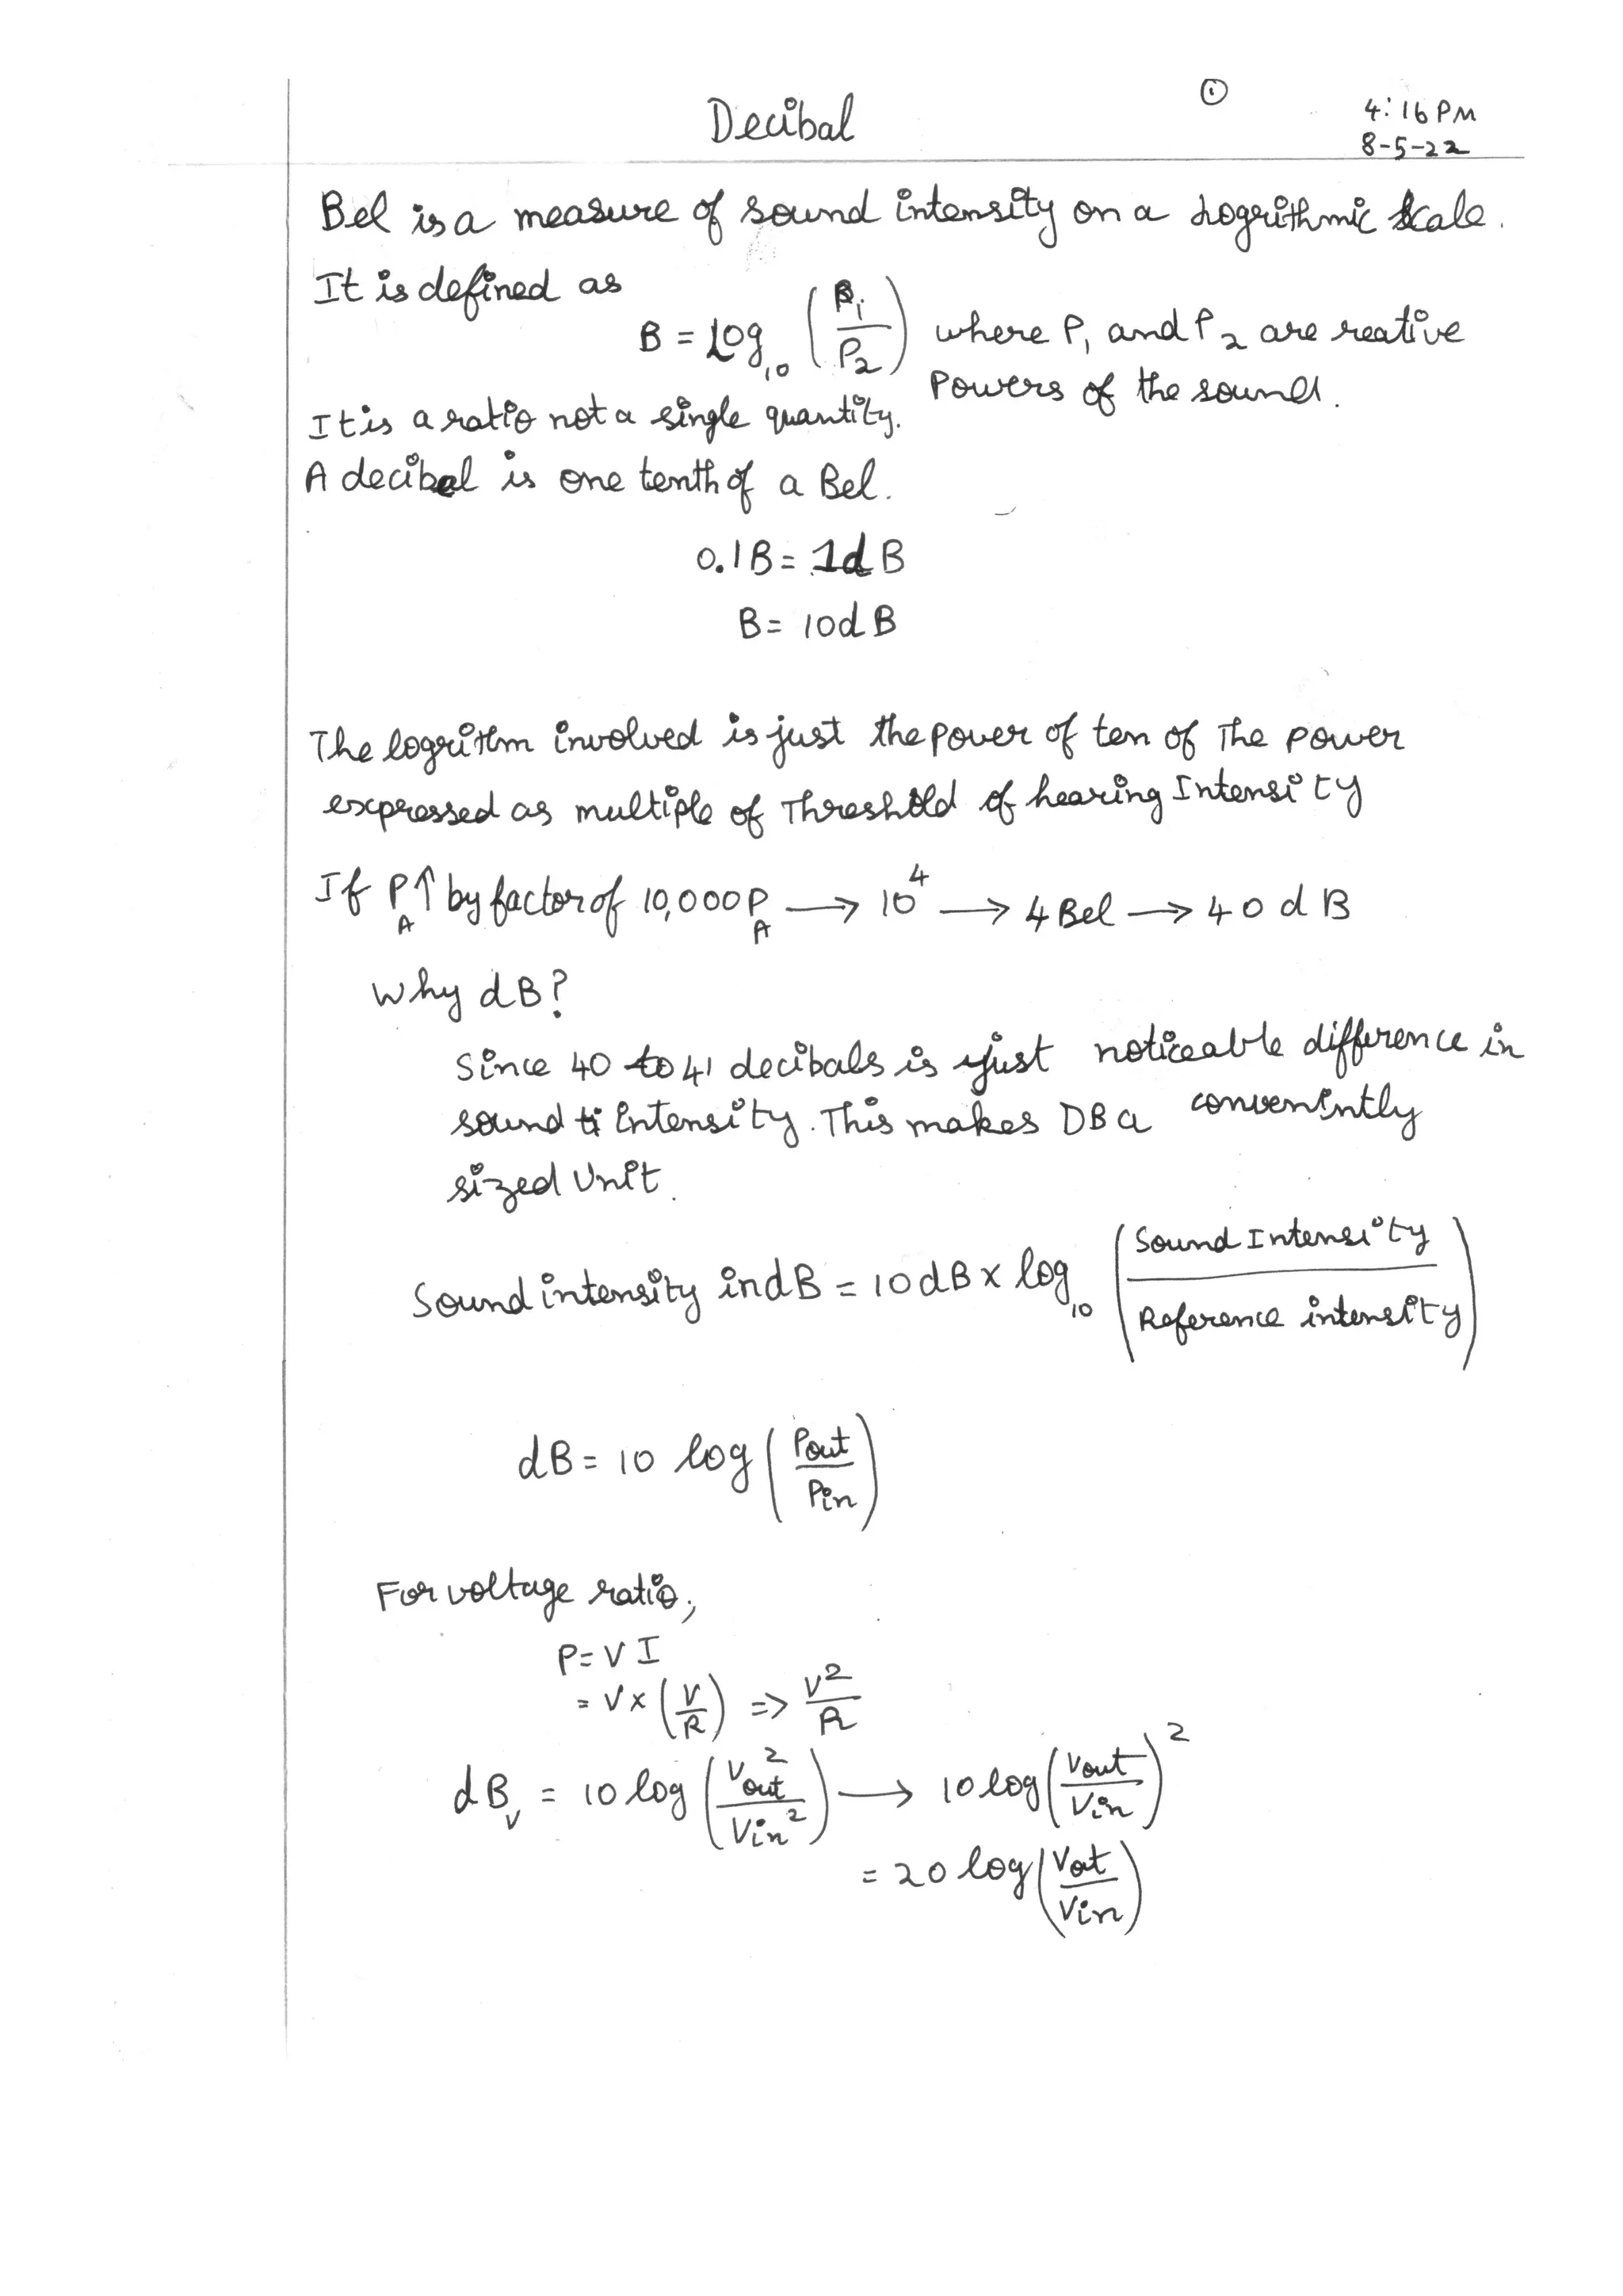 Decibal
①
4:16 PM
8-5-22
Bel is a measure of sound intensity on a Logrithmic scale.
It is defined as
B = Log₁₀ (P₁/P₂) where P₁ and P₂ are reative
Powers of the sound.
It is a ratio not a single quantity.
A decibel is one tenth of a Bel.
0.1B = 1dB
B = 10dB
The logrithm involved is just the power of ten of The power
expressed as multiple of Threshold of hearing Intensity
If P_A↑ by factor of 10,000P_A → 10⁴ → 4 Bel → 40 dB
Why dB?
Since 40 to 41 decibals is just noticeable difference in
sound intensity. This makes DB a convenintly
sized Unit.
Sound intensity in dB = 10dB x log₁₀ (Sound Intensity/Reference intensity)
dB = 10 log (Pout/Pin)
For voltage ratio,
P = VI
= V x (V/R) => V²/R
dB_V = 10 log (Vout²/Vin²) → 10 log (Vout/Vin)²
= 20 log (Vout/Vin)